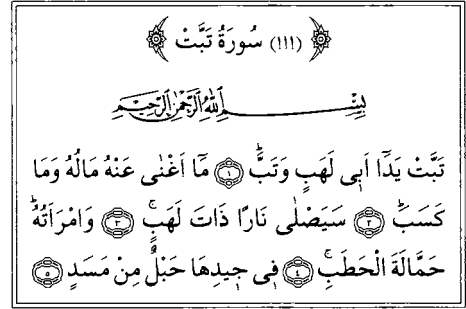 (١١١) سُورَةُ تَبَّتْ
بِسْمِ اللّٰهِ الرَّحْمٰنِ الرَّحِيمِ
تَبَّتْ يَدَٓا اَب۪ي لَهَبٍ وَتَبَّۜ ﴿١﴾ مَٓا اَغْنٰى عَنْهُ مَالُهُ وَمَا
كَسَبَۜ ﴿٢﴾ سَيَصْلٰى نَارًا ذَاتَ لَهَبٍۚ ﴿٣﴾ وَامْرَاَتُهُۜ
حَمَّالَةَ الْحَطَبِۚ ﴿٤﴾ ف۪ي ج۪يدِهَا حَبْلٌ مِنْ مَسَدٍ ﴿٥﴾